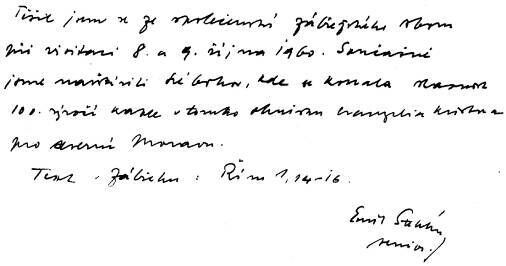 Těšil jsem se ze společenství zábřežského sboru
při visitaci 8. a 9. října 1960. Současně
jsme navštívili Hrabovu, kde se konala slavnost
100. výročí kázání v tomto okrsku evangelia Kristova
pro severní Moravu.
Text v Zábřehu: Řím 1, 14-16.
Emil
senior.